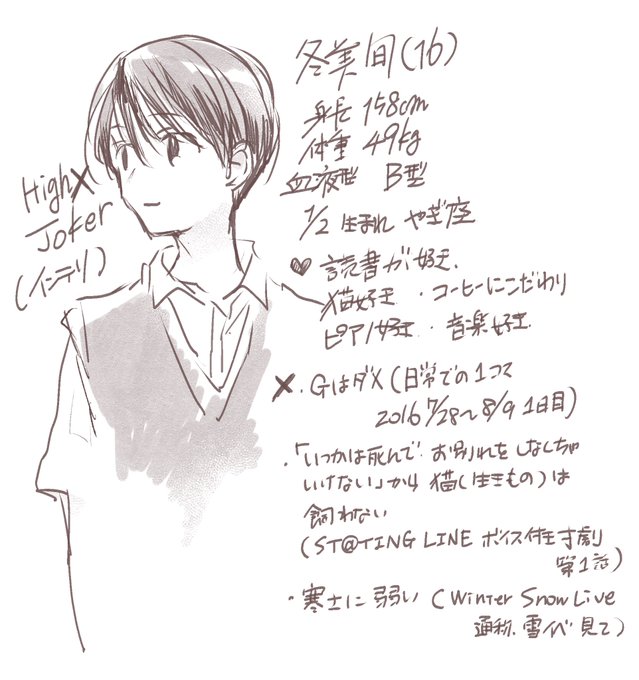 冬美旬(16)
身長 158cm
体重 49kg
血液型 B型
1/2 生まれ やぎ座
High×
Joker
(インテリ)
♥ 読書が好き.
猫好き ・コーヒーにこだわり
ピアノ好き ・音楽好き
×・Gはダメ(日常での1コマ
2016 7/28〜8/9 1日目)
・「いつかは死んで お別れをしなくちゃ
いけない」から 猫(生きもの)は
飼わない
(ST@TING LINE ボイス付き寸劇
第1話)
・寒さに弱い (Winter Snow Live
通称.雪イベ 見て)